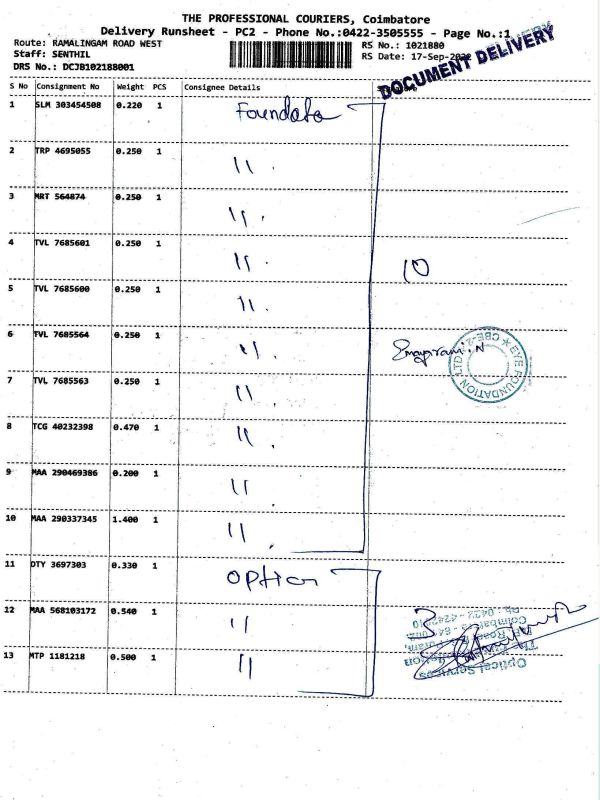 THE PROFESSIONAL COURIERS, Coimbatore
Delivery Runsheet - PC2 - Phone No.:0422-3505555 - Page No.:1
Route: RAMALINGAM ROAD WEST
Staff: SENTHIL
DRS No.: DCJB102188001
RS No.: 1021880
RS Date: 17-Sep-2022
DOCUMENT DELIVERY
S No Consignment No Weight PCS Consignee Details
1 SLM 303454508 0.220 1 Foundato
2 TRP 4695055 0.250 1 11 .
3 MRT 564874 0.250 1 11 .
4 TVL 7685601 0.250 1 11 .
5 TVL 7685600 0.250 1 11 .
10
6 TVL 7685564 0.250 1 11 .
EYE FOUNDATION LTD CBE-2
7 TVL 7685563 0.250 1 11 .
8 TCG 40232398 0.470 1 11 .
9 MAA 290469386 0.200 1 11
10 MAA 290337345 1.400 1 11 .
11 DTY 3697303 0.330 1 option
12 MAA 568103172 0.540 1 11
3
13 MTP 1181218 0.500 1 11
Optical Services